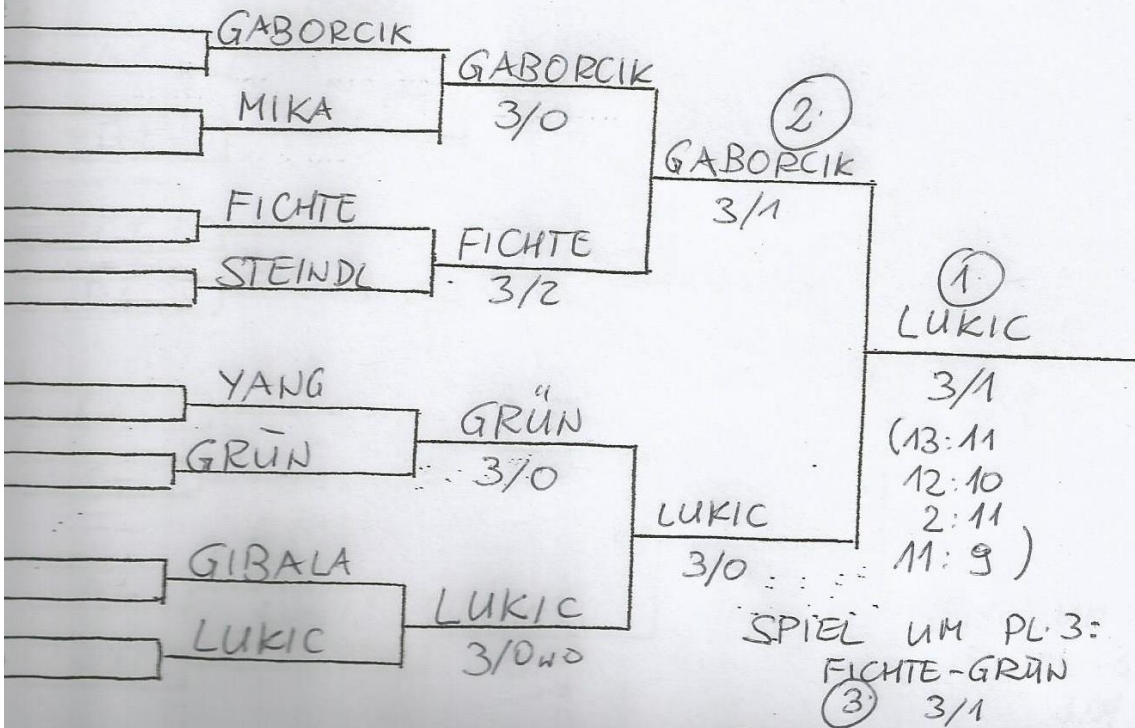 GABORCIK
MIKA
FICHTE
STEINDL
YANG
GRÜN
GIBALA
LUKIC
GABORCIK
3/0
FICHTE
3/2
GRÜN
3/0
LUKIC
3/0 wo
2.
GABORCIK
3/1
LUKIC
3/0
1.
LUKIC
3/1
(13:11
12:10
2:11
11:9)
SPIEL UM PL.3:
FICHTE-GRÜN
3. 3/1